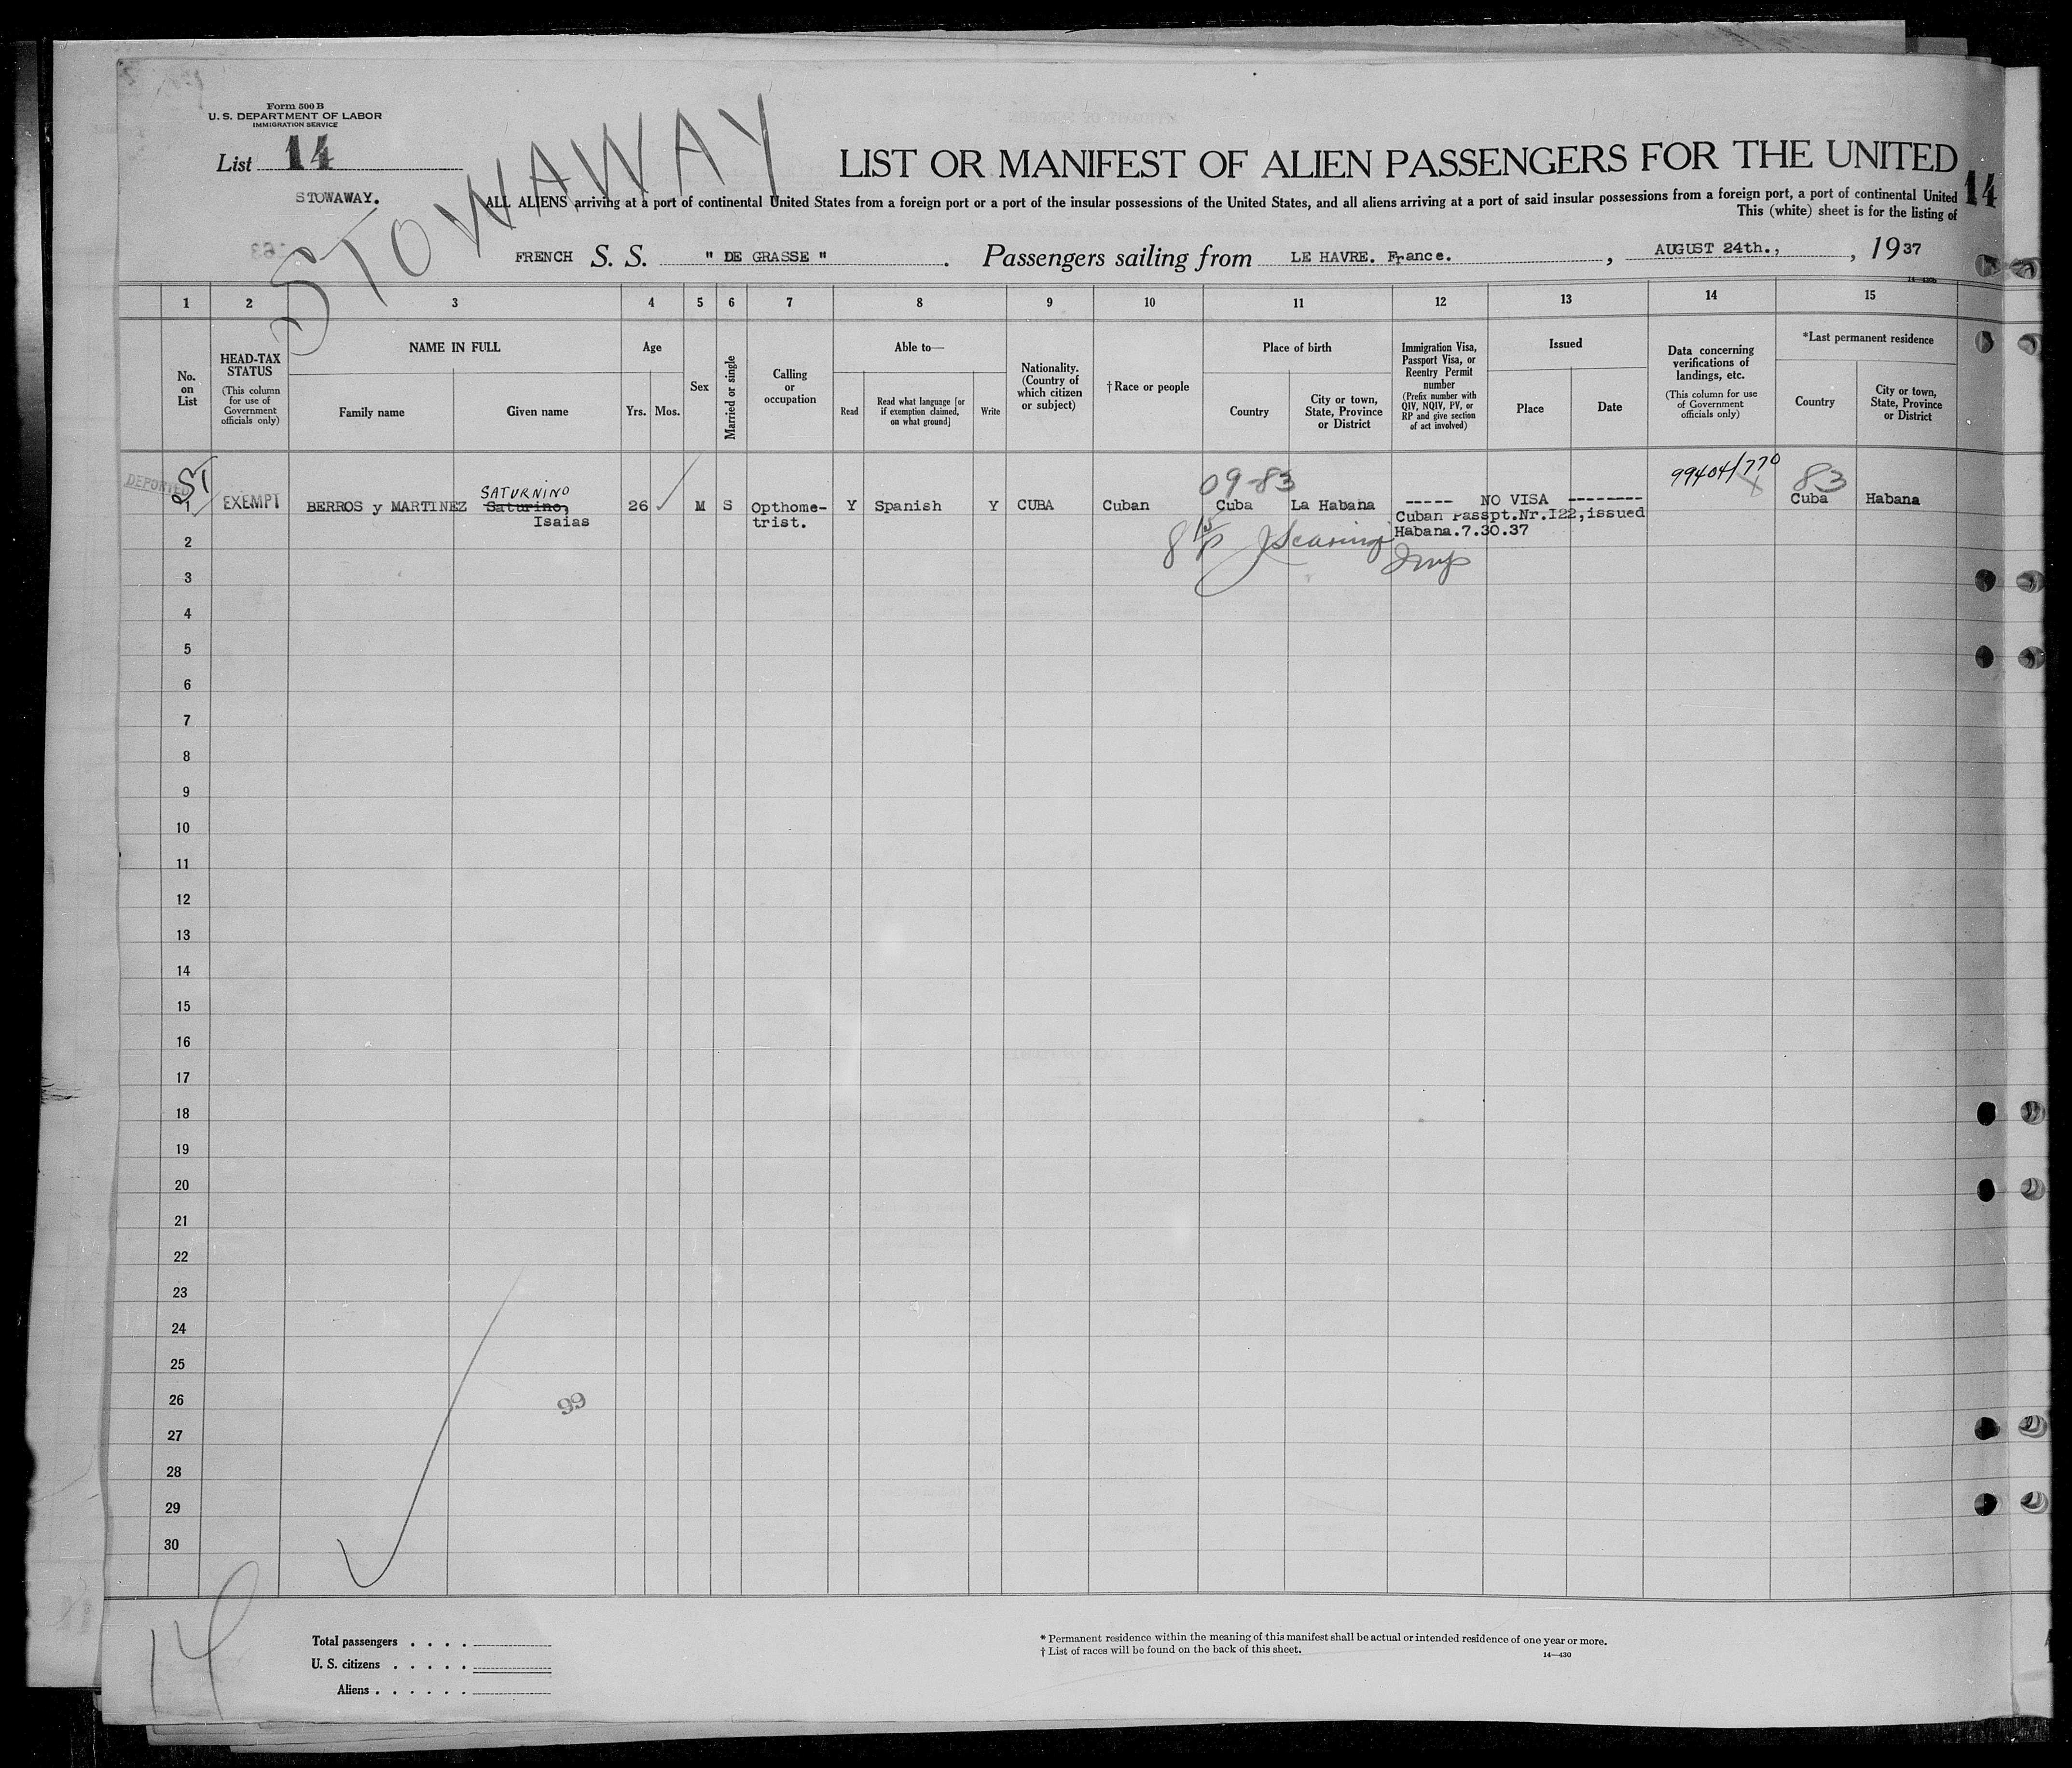 Form 500 B
U. S. DEPARTMENT OF LABOR
IMMIGRATION SERVICE
List 14
STOWAWAY.
STOWAWAY
LIST OR MANIFEST OF ALIEN PASSENGERS FOR THE UNITED
14
ALL ALIENS arriving at a port of continental United States from a foreign port or a port of the insular possessions of the United States, and all aliens arriving at a port of said insular possessions from a foreign port, a port of continental United
This (white) sheet is for the listing of
FRENCH S. S. " DE GRASSE " . Passengers sailing from LE HAVRE. France. , AUGUST 24th., , 1937
14—430b
1 2 3 4 5 6 7 8 9 10 11 12 13 14 15
No. on List
HEAD-TAX STATUS
(This column for use of Government officials only)
NAME IN FULL
Family name
Given name
Age
Yrs. Mos.
Sex
Married or single
Calling or occupation
Able to—
Read
Read what language [or if exemption claimed, on what ground]
Write
Nationality. (Country of which citizen or subject)
†Race or people
Place of birth
Country
City or town, State, Province or District
Immigration Visa, Passport Visa, or Reentry Permit number
(Prefix number with QIV, NQIV, PV, or RP and give section of act involved)
Issued
Place
Date
Data concerning verifications of landings, etc.
(This column for use of Government officials only)
*Last permanent residence
Country
City or town, State, Province or District
DEPORTED
ST
09-83
99404/770
83
SATURNINO
1 EXEMPT BERROS y MARTINEZ Saturino, 26 M S Opthome- Y Spanish Y CUBA Cuban Cuba La Habana ----- NO VISA -------- Cuba Habana
Isaias trist. Cuban Passpt.Nr.I22,issued
Habana.7.30.37
2
3
4
5
6
7
8
9
10
11
12
13
14
15
16
17
18
19
20
21
22
23
24
25
26
99
27
28
29
30
14
Total passengers . . . .
U. S. citizens . . . . .
Aliens . . . . . .
* Permanent residence within the meaning of this manifest shall be actual or intended residence of one year or more.
† List of races will be found on the back of this sheet.
14—430